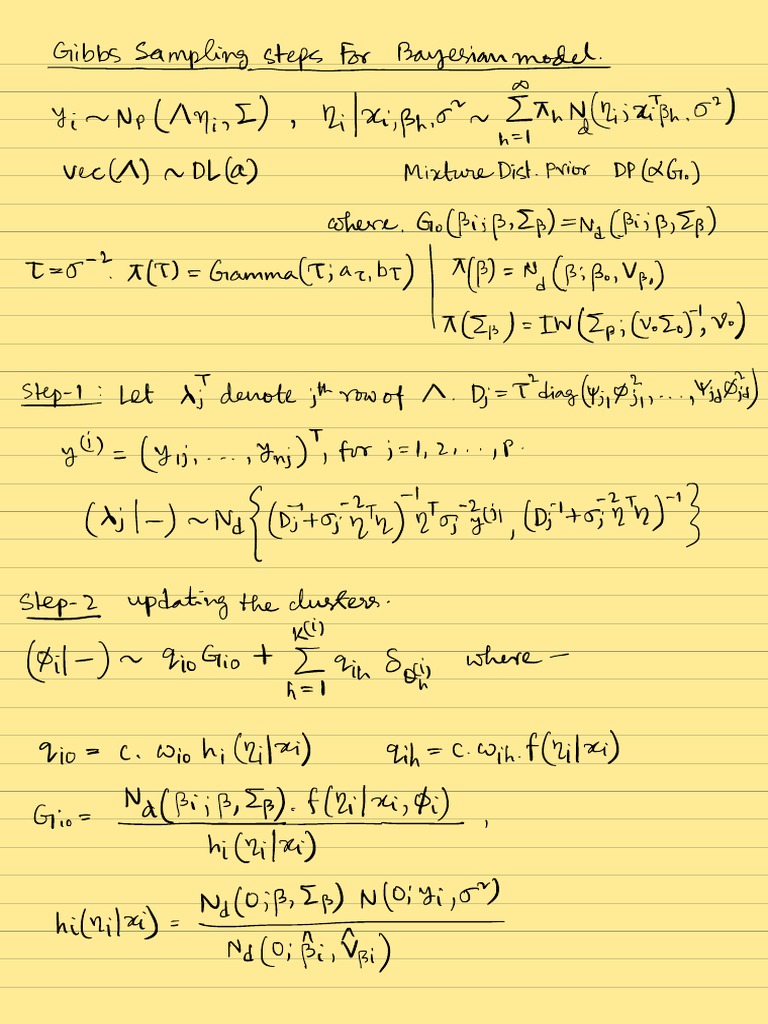 Gibbs Sampling steps for Bayesian model.
yᵢ ~ N_P(Ληᵢ, Σ), ηᵢ|xᵢ,β_h,σ² ~ Σ_{h=1}^{∞} π_h N_d(ηᵢ; xᵢᵀβ_h, σ²)
vec(Λ) ~ DL(a) Mixture Dist. prior DP(αG₀)
where. G₀(βᵢ; β, Σ_β) = N_d(βᵢ; β, Σ_β)
τ = σ⁻². π(τ) = Gamma(τ; a_τ, b_τ) | π(β) = N_d(β; β₀, V_β₀)
π(Σ_β) = IW(Σ_β; (ν₀Σ₀)⁻¹, ν₀)
Step-1: Let λⱼᵀ denote jᵗʰ row of Λ. Dⱼ = τ² diag(ψⱼ₁ϕ²ⱼ₁, ..., ψ_jd ϕ²_jd)
y⁽ʲ⁾ = (y₁ⱼ, ..., y_nj)ᵀ, for j = 1, 2, ..., P.
(λⱼ|−) ~ N_d{(Dⱼ⁻¹ + σⱼ⁻² ηᵀη)⁻¹ ηᵀ σⱼ⁻² y⁽ʲ⁾, (Dⱼ⁻¹ + σⱼ⁻² ηᵀη)⁻¹}
Step-2 updating the clusters.
(ϕᵢ|−) ~ qᵢ₀ Gᵢ₀ + Σ_{h=1}^{K⁽ⁱ⁾} q_ih δ_{θ_h⁽ⁱ⁾} where −
qᵢ₀ = c. ωᵢ₀ hᵢ(ηᵢ|xᵢ) q_ih = c. ω_ih. f(ηᵢ|xᵢ)
Gᵢ₀ = N_d(βᵢ; β, Σ_β). f(ηᵢ|xᵢ, ϕᵢ) / hᵢ(ηᵢ|xᵢ) ,
hᵢ(ηᵢ|xᵢ) = N_d(0; β, Σ_β) N(0; yᵢ, σ²) / N_d(0; β̂ᵢ, V̂_βi)